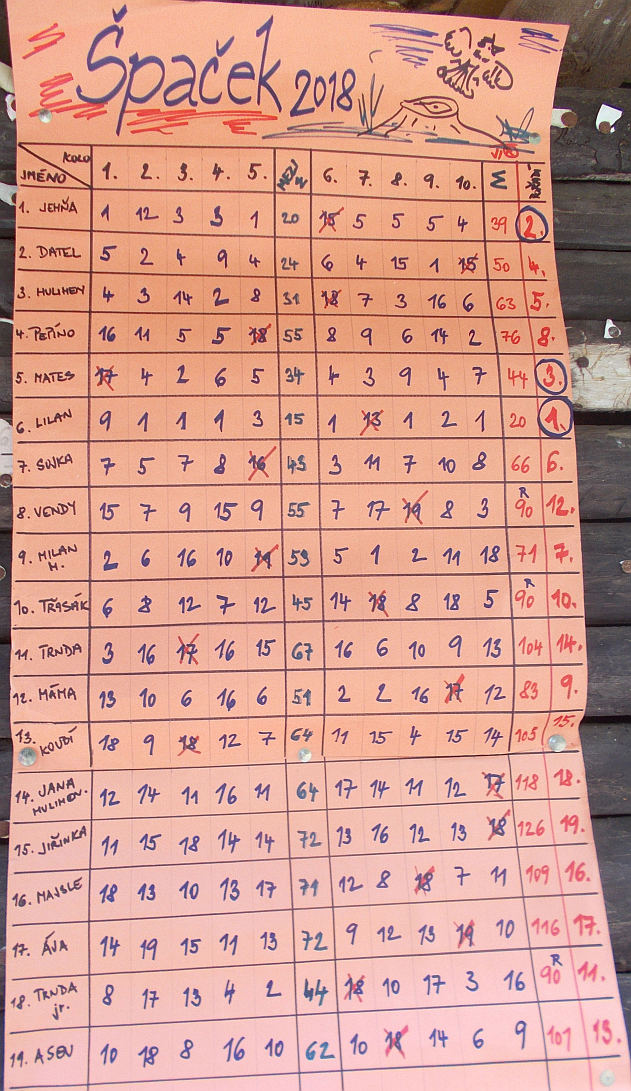 Špaček 2018
KOLO 1. 2. 3. 4. 5. 6. 7. 8. 9. 10. Σ
JMÉNO
1. JEHŇA 1 12 3 3 1 20 15 5 5 5 4 39 2.
2. DATEL 5 2 4 9 4 24 6 4 15 1 15 50 4.
3. HULIHEN 4 3 14 2 8 31 18 7 3 16 6 63 5.
4. PEPÍNO 16 11 5 5 18 55 8 9 6 14 2 76 8.
5. MATES 17 4 2 6 5 34 4 3 9 4 7 44 3.
6. LILAN 9 1 1 1 3 15 1 13 1 2 1 20 1.
7. SUVKA 7 5 7 8 16 43 3 11 7 10 8 66 6.
8. VENDY 15 7 9 15 9 55 7 17 19 8 3 R 90 12.
9. MILAN H. 2 6 16 10 19 53 5 1 2 11 18 71 7.
10. TŘASÁK 6 8 12 7 12 45 14 18 8 18 5 R 90 10.
11. TRNDA 3 16 17 16 15 67 16 6 10 9 13 104 14.
12. MÁMA 13 10 6 16 6 51 2 2 16 17 12 83 9.
13. KOUDÍ 18 9 18 12 7 64 11 15 4 15 14 105 15.
14. JANA HULIHEN. 12 14 11 16 11 64 17 14 11 12 17 118 18.
15. JIŘINKA 11 15 18 14 14 72 13 16 12 13 18 126 19.
16. MAJSLE 18 13 10 13 17 71 12 8 18 7 11 109 16.
17. ÁJA 14 19 15 11 13 72 9 12 13 19 10 116 17.
18. TRNDA jr. 8 17 13 4 2 44 18 10 17 3 16 R 90 11.
19. ASEN 10 18 8 16 10 62 10 18 14 6 9 101 13.